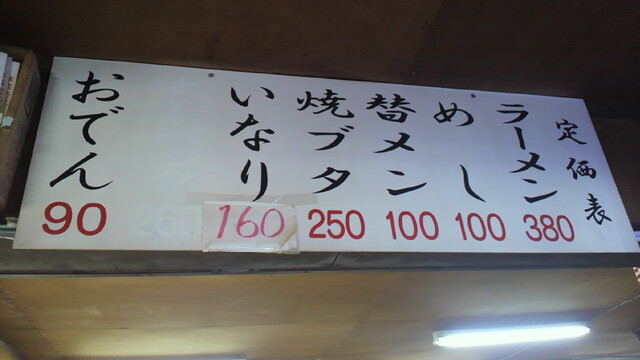 定価表
ラーメン 380
めし 100
替メン 100
焼ブタ 250
いなり 160
おでん 90